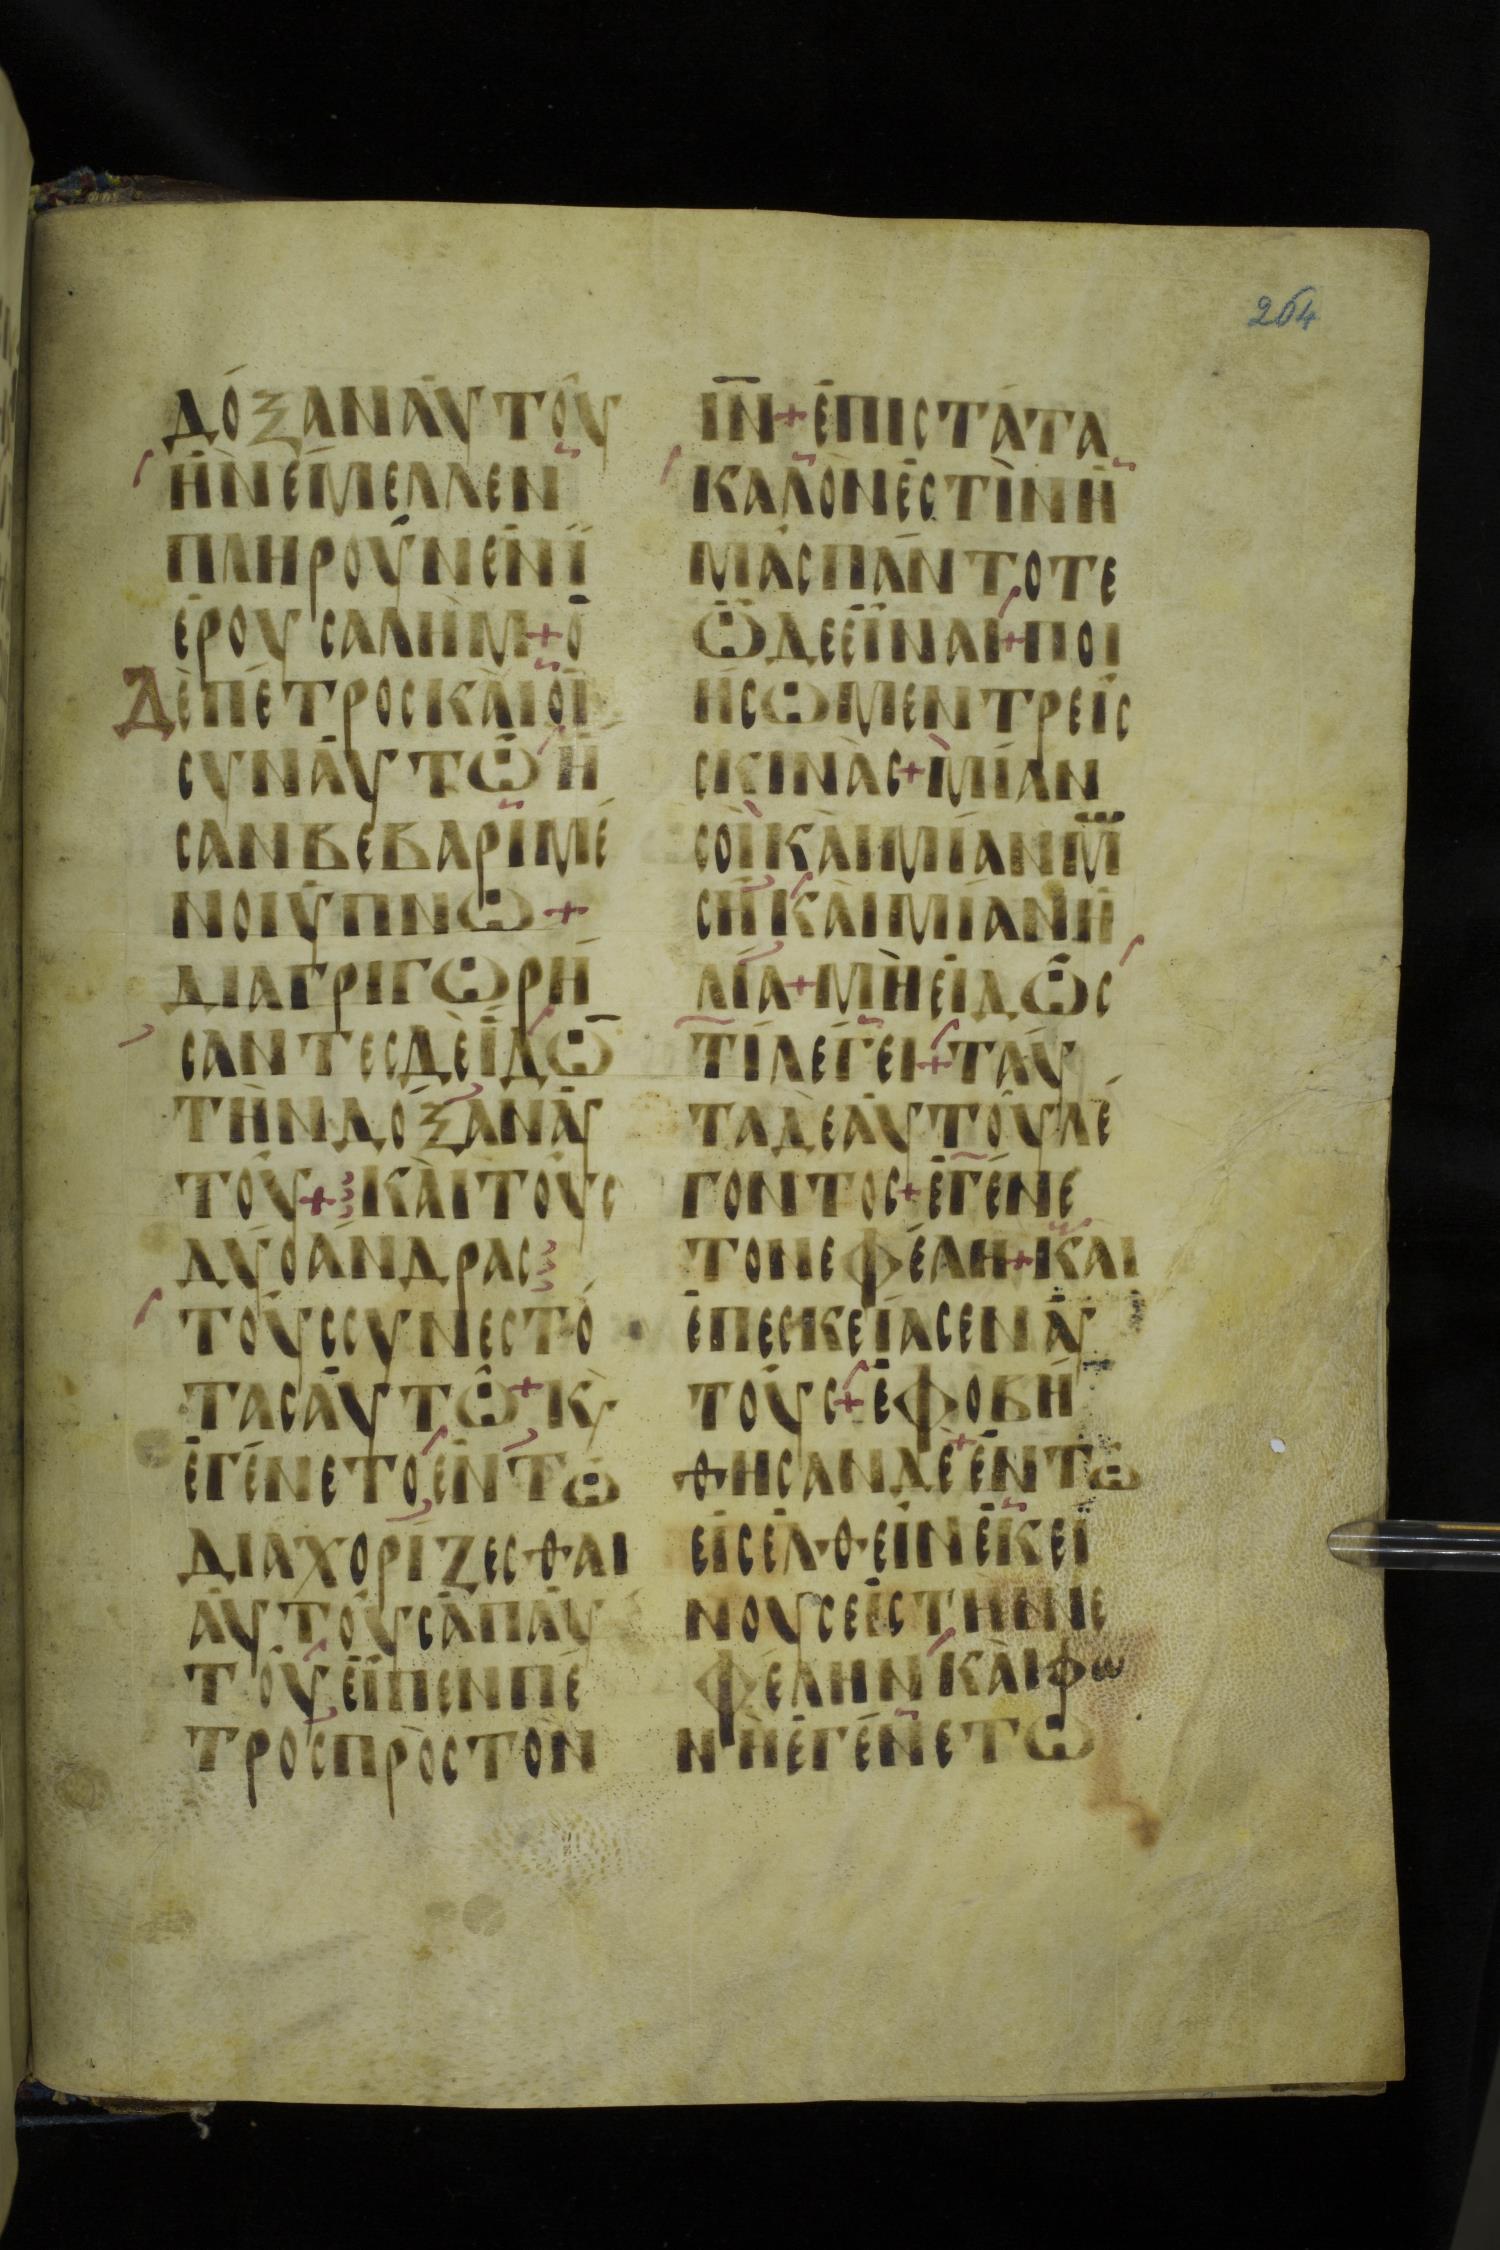 264
ΔΌΞΑΝΑΥΤΟΥ
ἩΝΕΜΕΛΛΕΝ
ΠΛΗΡΟΥΝΕΝΪ
ΕΡΟΥΣΑΛΗΜ+Ο
ΔΕΠΕΤΡΟΣΚΑΙΟΙ
ΣΥΝΑΥΤΩΗ
ΣΑΝΒΕΒΑΡΙΜΕ
ΝΟΙΥΠΝΩ+
ΔΙΑΓΡΙΓΩΡΗ
ΣΑΝΤΕΣΔΕΙΔΩ̅
ΤΗΝΔΟΞΑΝΑΥ
ΤΟΥ+ΚΑΙΤΟΥΣ
ΔΥΟΑΝΔΡΑΣ
ΤΟΥΣΣΥΝΕΣΤΟ
ΤΑΣΑΥΤΩ+Κ,
ΕΓΕΝΕΤΟΕΝΤΩ
ΔΙΑΧΟΡΙΖΕΣΘΑΙ
ΑΥΤΟΥΣΑΠΑΥ
ΤΟΥΕΙΠΕΝΠΕ
ΤΡΟΣΠΡΟΣΤΟΝ
Ι̅Ν̅+ΕΠΙΣΤΑΤΑ
ΚΑΛΟΝΕΣΤΙΝΗ
ΜΑΣΠΑΝΤΟΤΕ
ΩΔΕΕΙΝΑΙ+ΠΟΙ
ΗΣΩΜΕΝΤΡΕΙΣ
ΣΚΙΝΑΣ+ΜΙΑΝ
ΣΟΙΚΑΙΜΙΑΝΜ̅
ΣΗΚΑΙΜΙΑΝΗ
ΛΙΑ+ΜΗΕΙΔΩΣ
ΤΙΛΕΓΕΙ+ΤΑΥ
ΤΑΔΕΑΥΤΟΥΛΕ
ΓΟΝΤΟΣ+ΕΓΕΝΕ
ΤΟΝΕΦΕΛΗ+ΚΑΙ
ΕΠΕΣΚΕΙΑΣΕΝΑΥ
ΤΟΥΣ+ΕΦΟΒΗ
ΘΗΣΑΝΔΕΕΝΤΩ
ΕΙΣΕΛΘΕΙΝΕΚΕΙ
ΝΟΥΣΕΙΣΤΗΝΝΕ
ΦΕΛΗΝΚΑΙΦΩ
ΝΗΕΓΕΝΕΤΩ